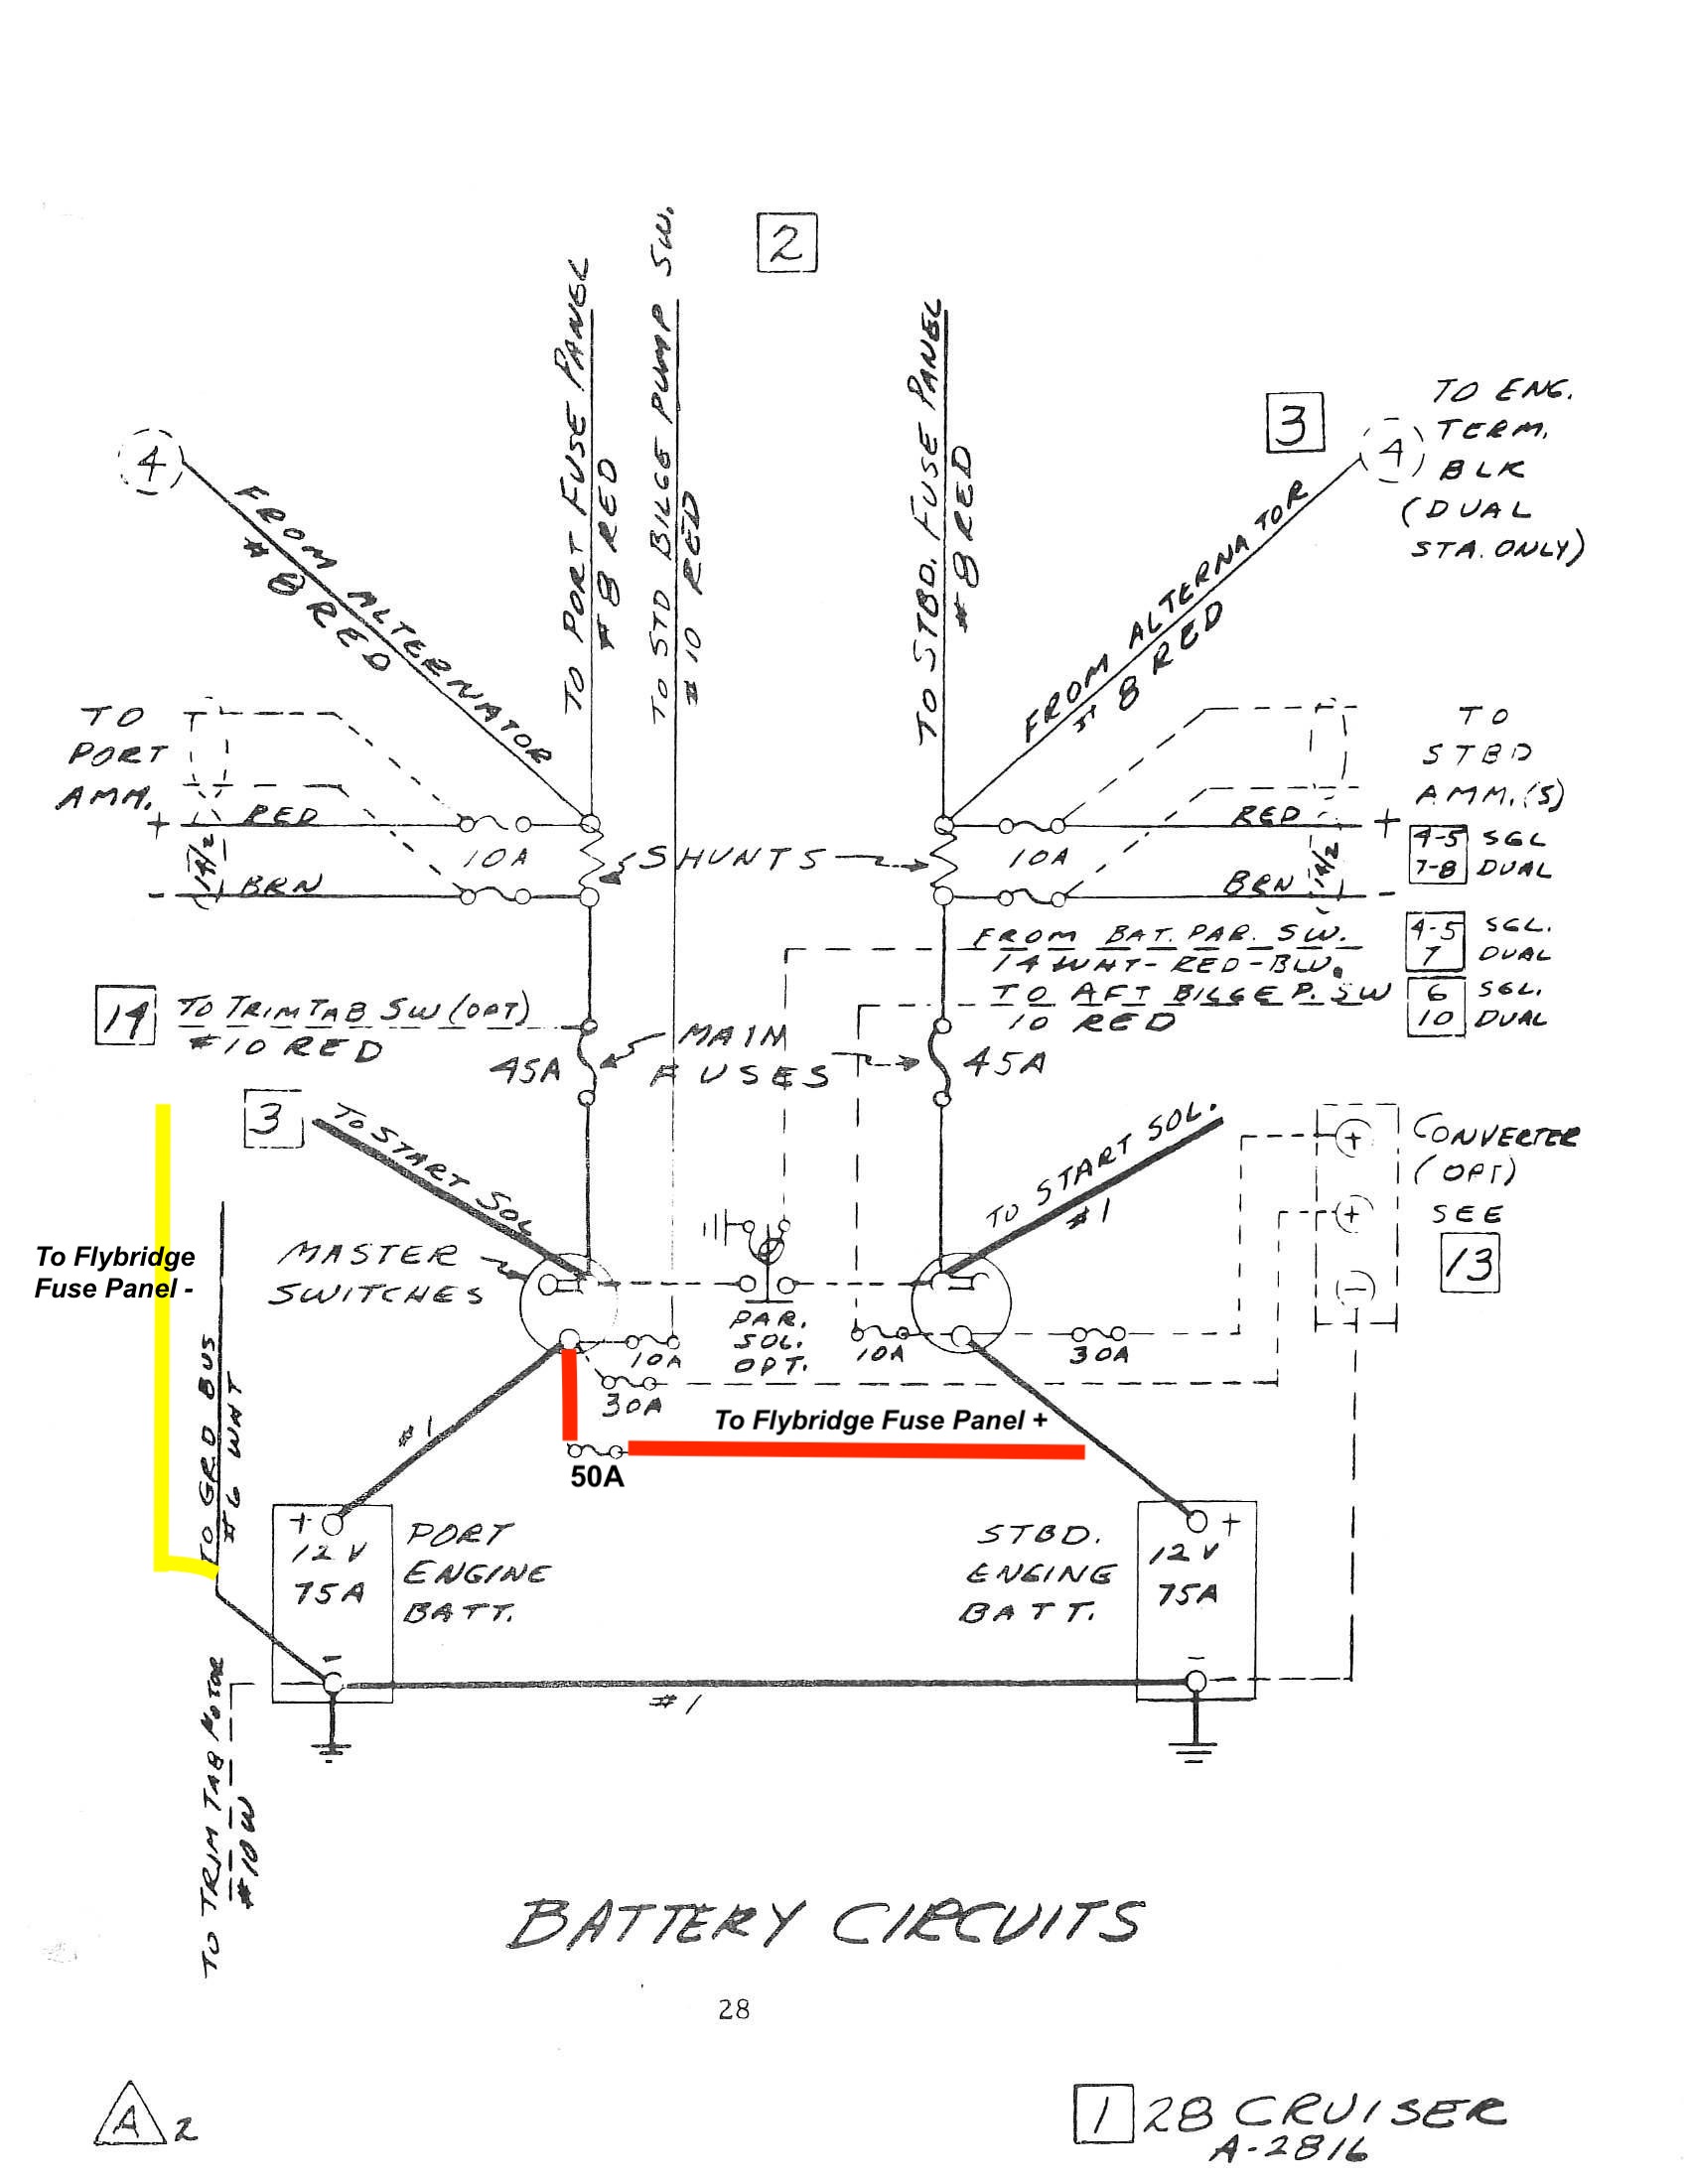 2
TO PORT FUSE PANEL
# 8 RED
TO STD BILGE PUMP SW.
# 10 RED
TO STBD. FUSE PANEL
# 8 RED
3
4
TO ENG.
TERM.
BLK
(DUAL
STA. ONLY)
4
FROM ALTERNATOR
# 8 RED
FROM ALTERNATOR
# 8 RED
TO
PORT
AMM.
+ RED
10A
14/2
- BRN
SHUNTS
10A
RED +
14/2
BRN -
TO
STBD
AMM.(S)
4-5 SGL
7-8 DUAL
FROM BAT. PAR. SW.
14 WHT-RED-BLU.
4-5 SGL.
7 DUAL
TO AFT BILGE P. SW
10 RED
6 SGL.
10 DUAL
14
TO TRIM TAB SW (OPT)
#10 RED
45A
MAIN
FUSES
45A
3
TO START SOL
TO START SOL.
#1
CONVERTER
(OPT)
SEE
13
+
+
-
To Flybridge
Fuse Panel -
MASTER
SWITCHES
PAR.
SOL.
OPT.
10A
30A
10A
30A
TO GRD BUS
#6 WHT
#1
To Flybridge Fuse Panel +
50A
+
12V
75A
-
PORT
ENGINE
BATT.
STBD.
ENGINE
BATT.
+
12V
75A
-
#1
TO TRIM TAB MOTOR
#10W
BATTERY CIRCUITS
28
A 2
1 28 CRUISER
A-2816